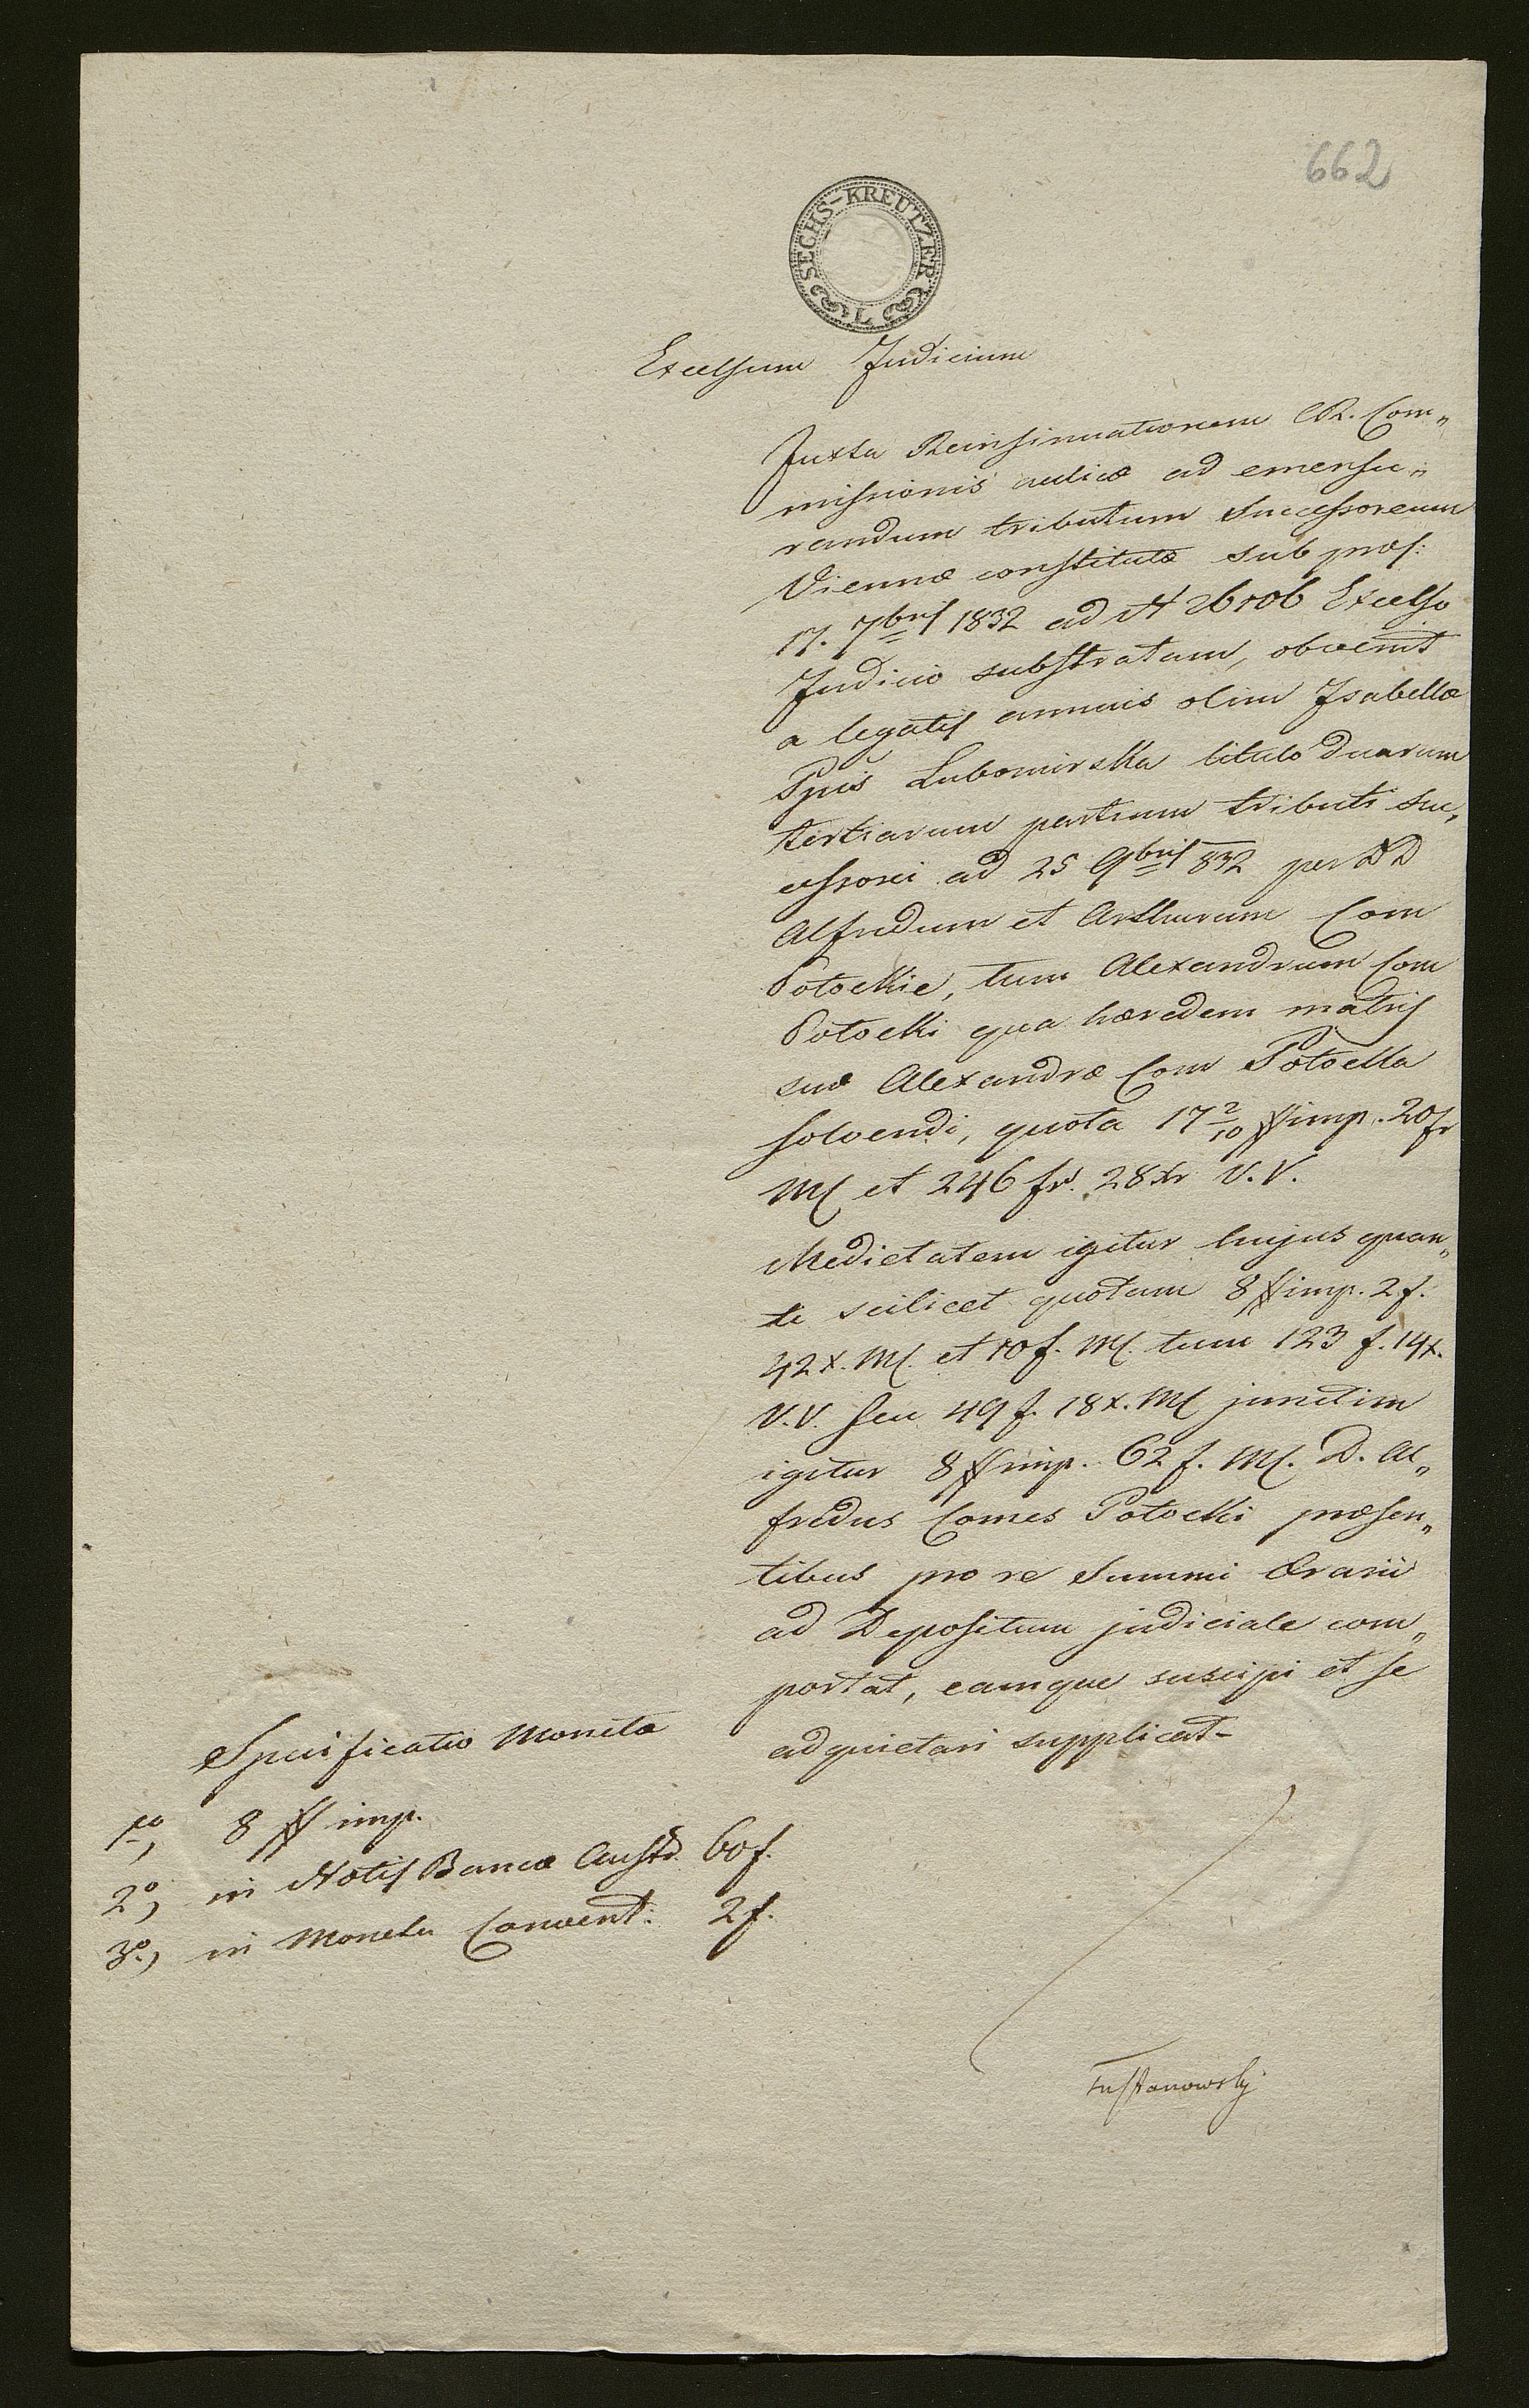 662
SECHS-KREUTZER
L
Excelsum Judicium
Juxta Reinsinuationem CR. Com„
missionis aulicæ ad emensu„
randum tributum Successoreum
Viennæ constitutæ sub præs:
17. 7bris 1832 ad N 26106 Excelso
Judicio substratam, obvenit
a legatis annuis olim Isabellæ
Ppis Lubomirska titulo duarum
tertiarum partium tributi suc„
cessorei ad 25 9bris 832 per DD
Alfredum et Arthurum Com
Potockie, tum Alexandrum Com
Potocki qua hæredem matris
suæ Alexandræ Com Potocka
solvendi, quota 17 2/10 ## imp. 20 fr
M et 246 fr. 28 xr V.V.
Medietatem igitur hujus quan„
ti scilicet quotam 8 ## imp. 2 f.
42 x. M. et 10 f. M. tum 123 f. 14 x.
V.V. seu 49 f. 18 x. M junctim
igitur 8 ## imp. 62 f. M. D. Al„
fredus Comes Potocki præsen„
tibus pro re Summi Ærarii
ad Depositum judiciale com„
portat, eamque suscipi et se
adquietari supplicat-
Specificatio Monetæ
1mo, 8 ## imp.
2o, in Notis Bancæ Austr. 60 f.
3o, in Moneta Convent: 2 f.
Tustanowsky